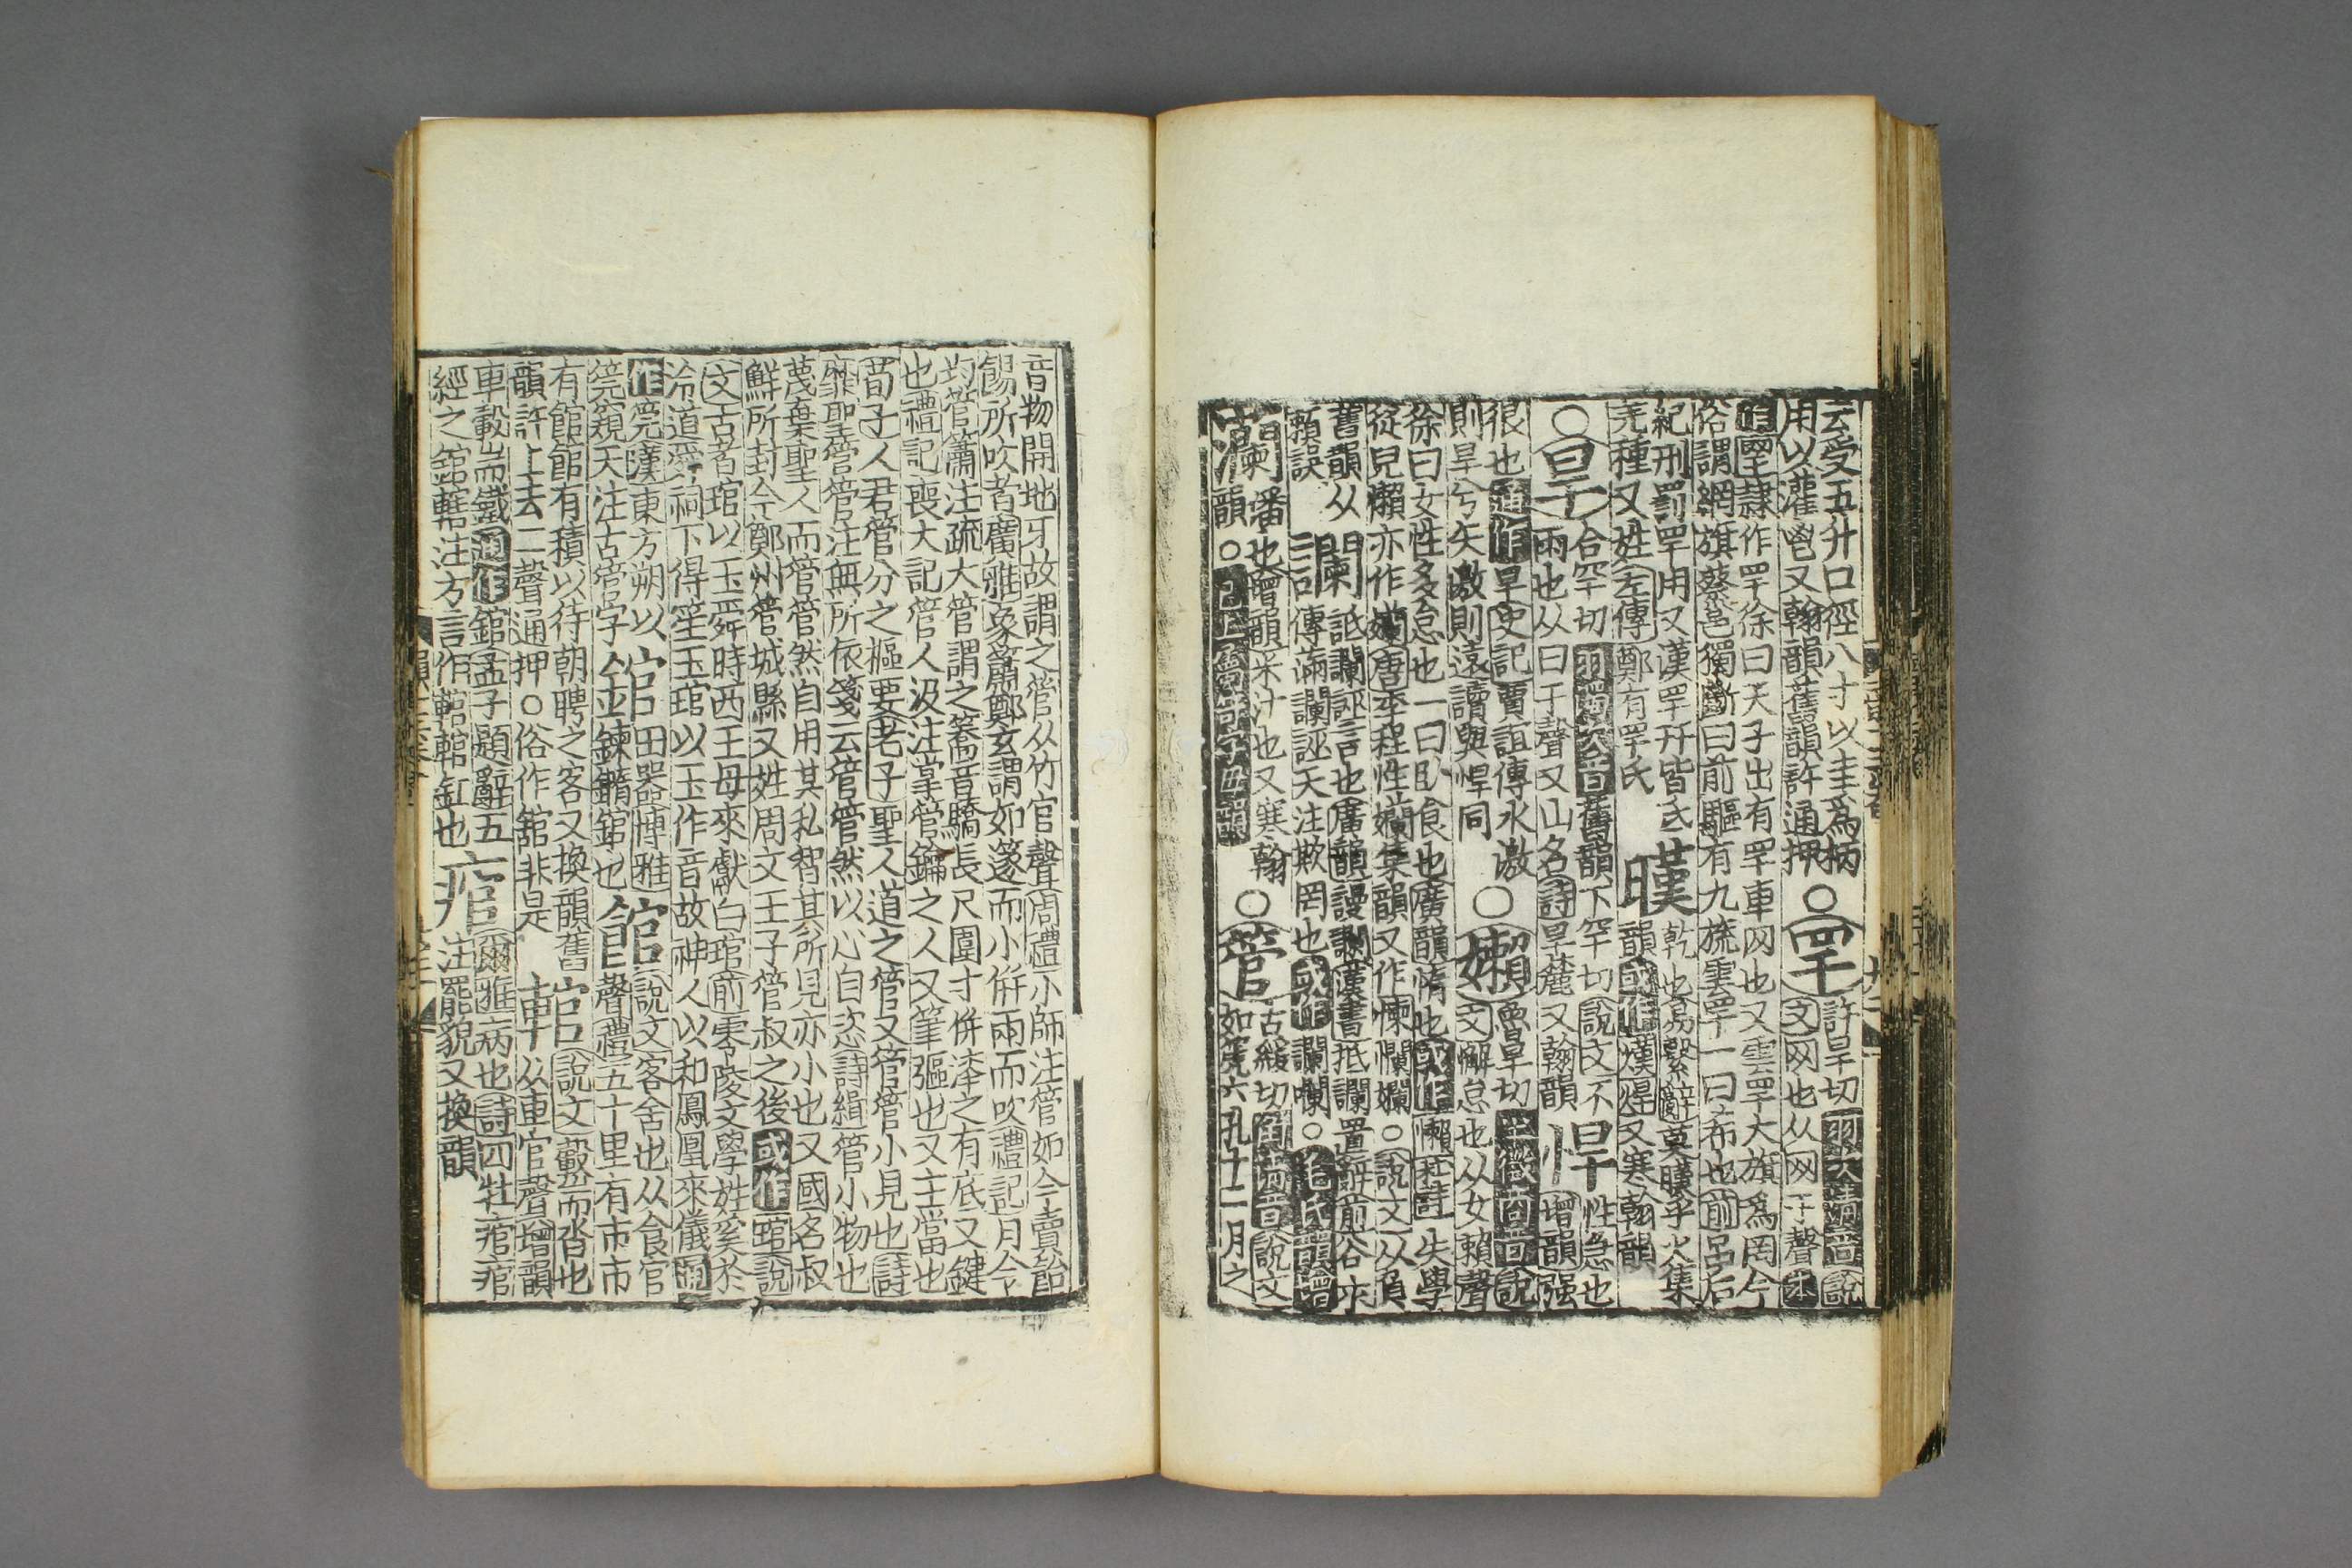 云受五升口徑八寸以圭爲柄〇罕許旱切羽次清音說
用以灌鬯又翰韻舊韻許通押文网也从网干聲本
作䍐隷作罕徐曰天子出有罕車网也又雲罕大旗爲罔今
俗謂網旗蔡邕獨斷曰前驅有九斿雲罕一曰布也前呂后
紀刑罰罕用又漢罕幵皆羌暵乾也易繫辭莫暵乎火集
羌種又姓左傳鄭有罕氏韻或作熯焊又寒翰韻
〇旱合罕切羽濁次音舊韻下罕切說文不悍性急也
雨也从日干聲又山名詩旱麓又翰韻增韻强
很也通作旱史記賈誼傳水激〇嬾魯旱切半徵商音說
則旱兮矢激則遠讀與悍同文懈怠也从女賴聲
徐曰女性多怠也一曰臥食也廣韻惰也或作懶杜詩失學
從兒懶亦作嬾唐李程性嬾集韻又作㦨爛孏〇說文从負
舊韻从讕詆讕誣言也廣韻謾讕漢書抵讕置辭前谷永
賴誤傳滿讕誣天注欺罔也或作讕㘓〇毛氏韻增
灡潘也增韻米汁也又寒翰〇管古緩切角清音說文
韻〇已上魯旱字母韻如箎六孔十二月之
音物開地牙故謂之管从竹官聲周禮小師注管如今賣飴
餳所吹者廣雅象簫鄭玄謂如篴而小併兩而吹禮記月令
均管簫注疏大管謂之簥音驕長尺圍寸併漆之有底又鍵
也禮記喪大記管人汲注掌管鑰之人又筆彄也又主當也
荀子人君管分之樞要老子聖人道之管又管管小見也詩
靡聖管管注無所依箋云管管然以心自恣詩緝管小物也
蔑棄聖人而管管然自用其私智其所見亦小也又國名叔
鮮所封今鄭州管城縣又姓周文王子管叔之後或作琯說
文古者琯以玉舜時西王母來獻白琯前零陵文學姓奚於
泠道舜祠下得笙玉琯以玉作音故神人以和鳳凰來儀通
作筦漢東方朔以錧田器博雅館說文客舍也从食官
筦窺天注古管字錬鏅錧也聲禮五十里有市市
有館館有積以待朝聘之客又換韻舊輨說文轂耑沓也
韻許上去二聲通押〇俗作舘非是从車官聲增韻
車轂耑鐵通作錧孟子題辭五痯爾雅病也詩四牡痯痯
經之錧轄注方言作輨輨釭也注罷貌又換韻